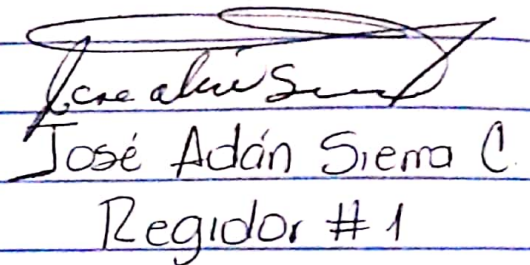 José Adán Sierra C.
Regidor #1